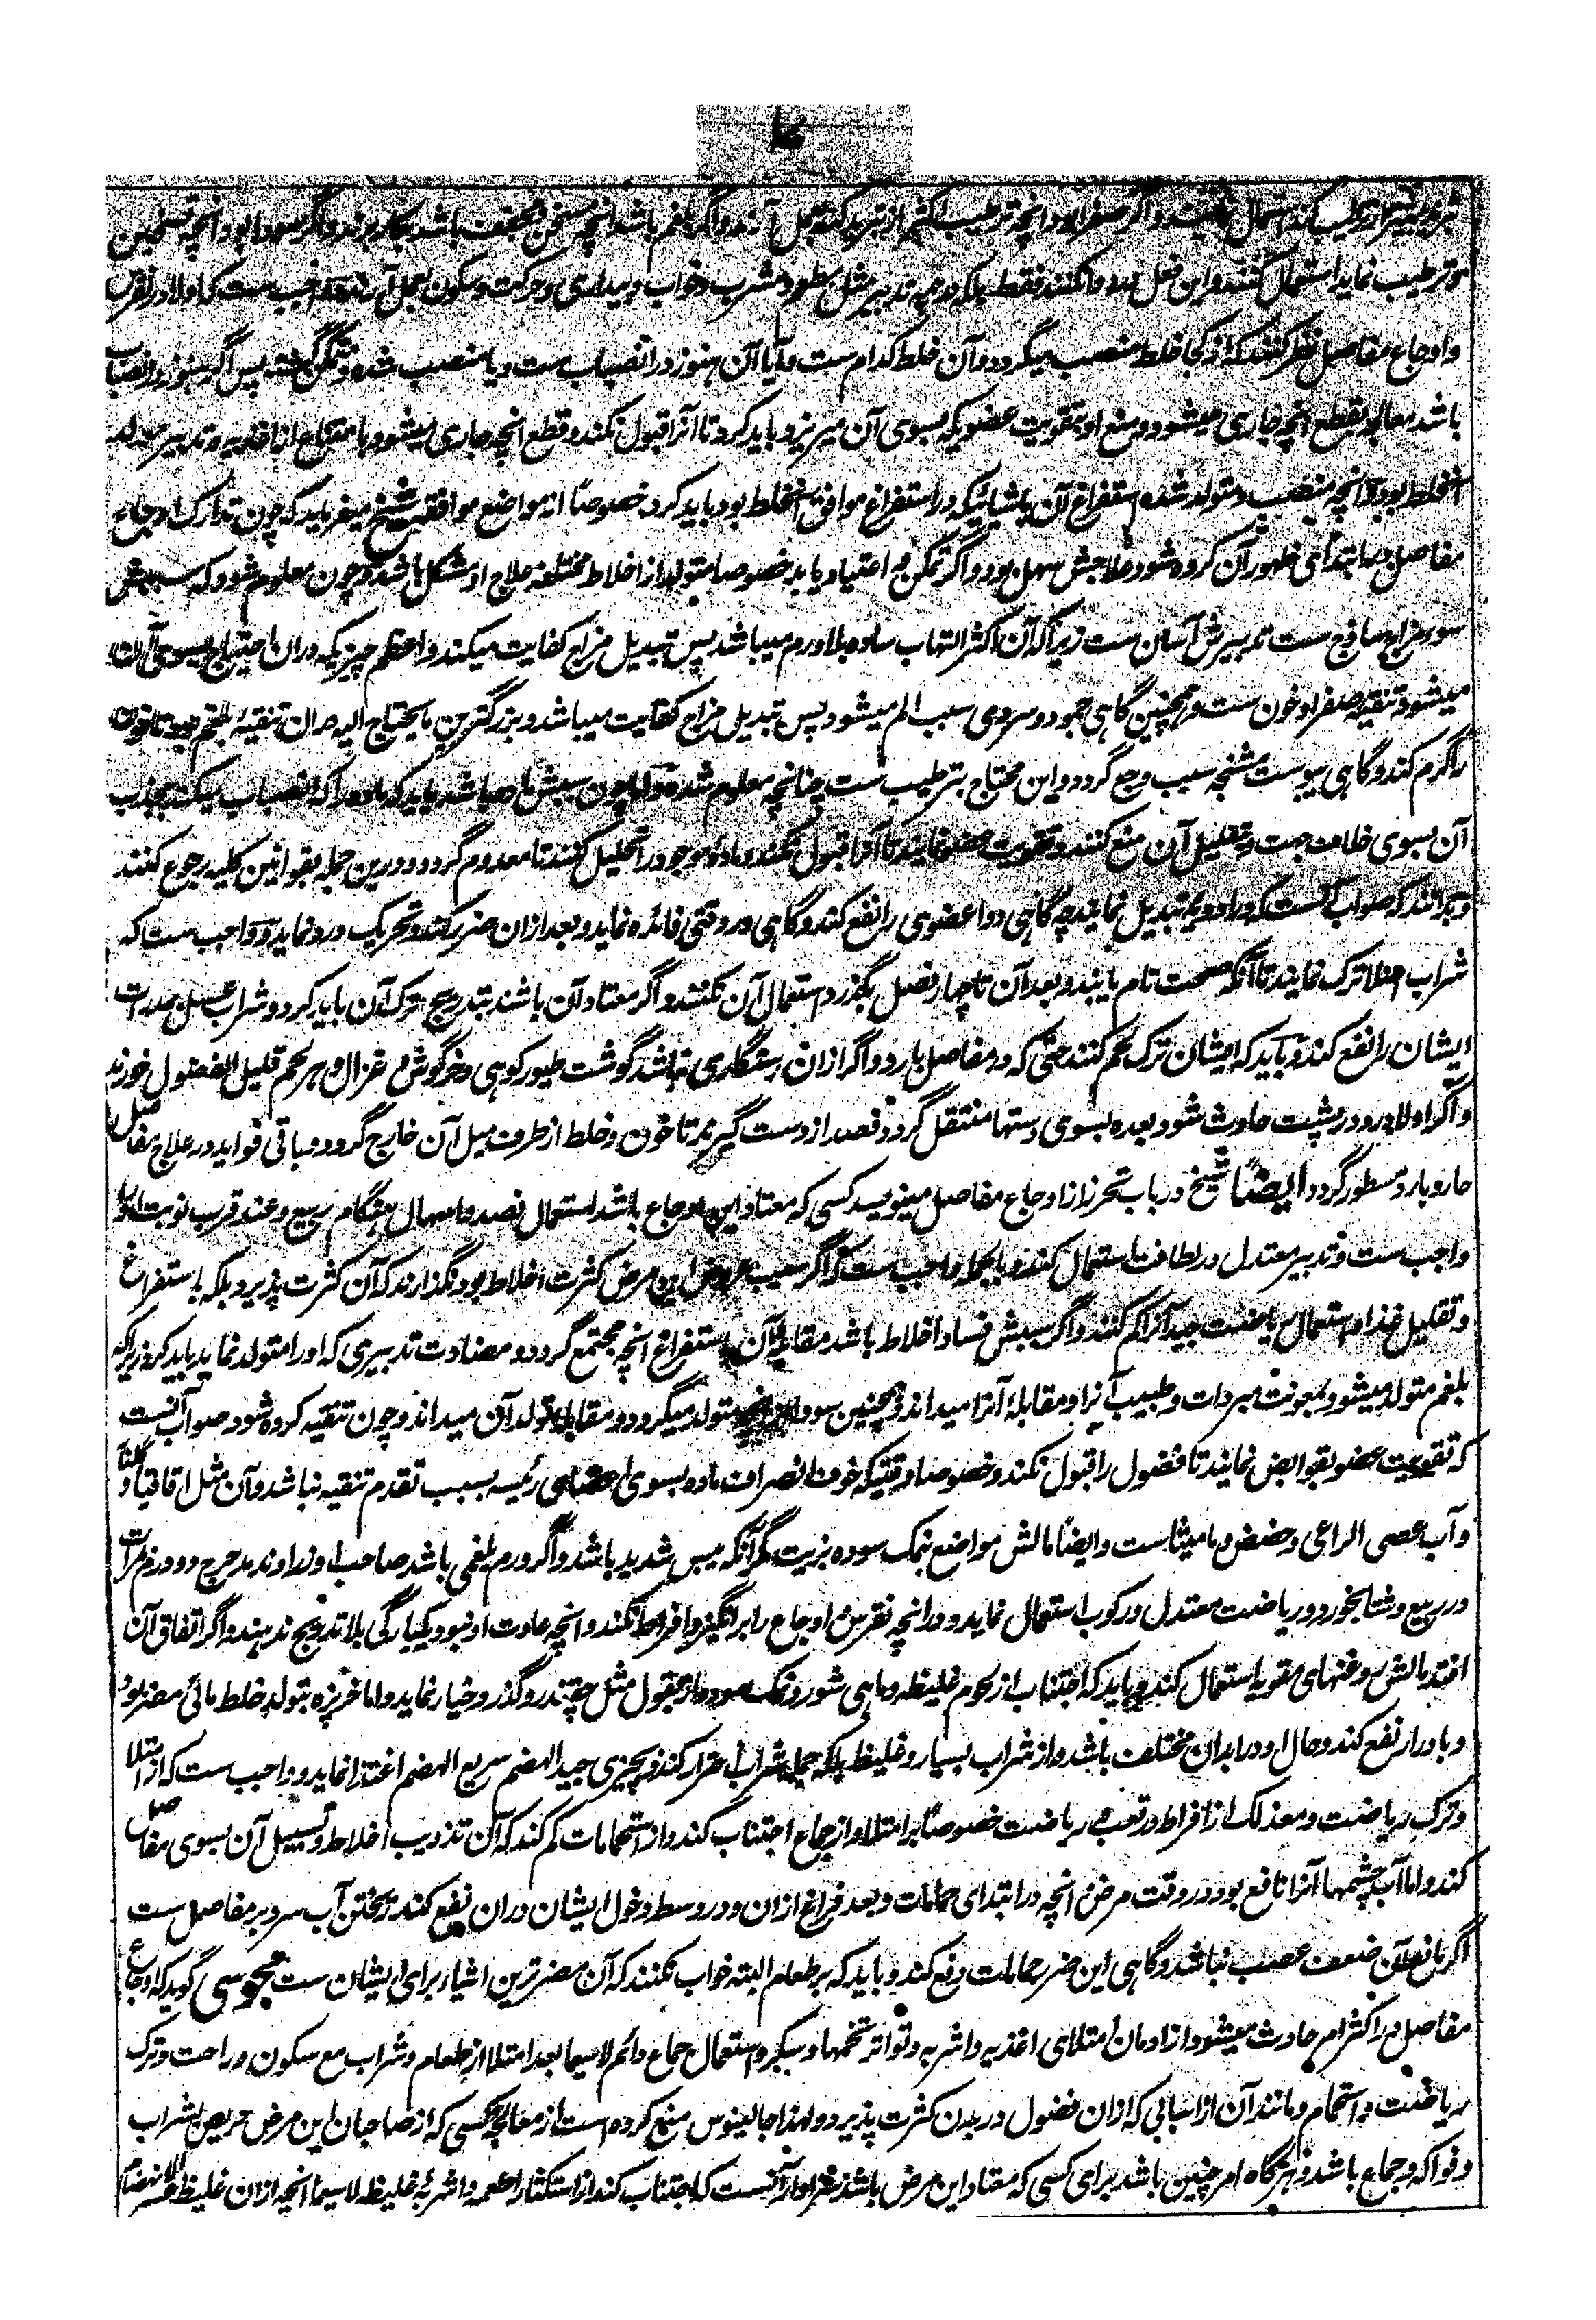 وترطیب نماید استعمال کنند و این فعل در دوا نکنند فقط بلکه در همه تدبیر مثل مطعوم و مشرب و خواب و بیداری و حرکت و سکون بعمل آرند واجب ست که اولا در نقرس
و اوجاع مفاصل نظر کنند که از کجا خلط منصب میگردد و آن خلط کدام ست و آیا آن هنوز در انصباب ست و یا منصب شده و متمکن گشته پس اگر هنوز در انصباب
باشد معالجه بقطع انچه جاری میشود و منع او بتقویت عضویکه بسوی آن میریزد باید کرد تا آنرا قبول نکند و قطع انچه جاری میشود با امتناع از اغذیه و تدبیر مولد
انخلط بود و انچه منصب و متولد شده استفراغ آن باشیائیکه در استفراغ موافق انخلط بود باید کرد خصوصاً از مواضع موافقه شیخ میفرماید که چون تدارک اوجاع
مفاصل در ابتدای ظهور آن کرده شود علاجش سهل بود و اگر تمکن و اعتیاد یابد خصوصا متولد از اخلاط مختلفه علاج او مشکل باشد و چون معلوم شود که سببش
سوء مزاج ساذج ست تدبیرش آسان ست زیراکه آن اکثر التهاب ساده بلا ورم میباشد پس تبدیل مزاج کفایت میکند و اعظم چیزیکه دران احتیاج بسوی آن
میشود تنقیه صفرا و خون ست و همچنین گاهی جمود و سردی سبب الم میشود پس تبدیل مزاج کفایت میباشد و بزرگترین مایحتاج الیه دران تنقیهٔ بلغم بود تا خون
را گرم کند و گاهی یبوست مشنجه سبب وجع گردد و این محتاج بترطیب ست چنانچه معلوم شده و اما چون سببش ماده باشد باید که ماده را که انصباب میکند بجذب
آن بسوی خلاف جهت و تقلیل آن منع کنند و تقویت عضو نمایند تا آنرا قبول نکند و مادهٔ موجود را تحلیل کنند تا معدوم گردد و درین جمله بقوانین کلیه رجوع کنند
و بدانند که صواب آنست که در ادویه تبدیل نمایند چه گاهی دوا عضوی را نفع کند و گاهی در وقتی فائده نماید و بعد ازان ضرر کند و تحریک درد نماید و واجب ست که
شراب اصلا ترک نمایند تا آنکه صحت تام یابند و بعد آن تا چهار فصل بگذرد استعمال آن نکنند و اگر معتاد آن باشند بتدریج ترک آن باید کرد و شراب عسل مدرات
ایشان را نفع کند و باید که ایشان ترک لحم کنند حتی که در مفاصل بارد و اگر ازان رستگاری نباشد گوشت طیور کوهی و خرگوش و غزال و هر لحم قلیل الفضول خورند
و اگر اولا درد در پشت حادث شود بعده بسوی دستها منتقل گردد فصد از دست گیرند تا خون و خلط از طرف میل آن خارج گردد و مباقی فواید در علاج مفاصل
حار و بارد مسطور گردد ایضاً شیخ در باب تحرز از اوجاع مفاصل مینویسد کسی که معتاد این اوجاع باشد استعمال فصد و اسهال هنگام ربیع و عند قرب نوبت او
واجب ست و تدبیر معتدل در لطافت استعمال کنند و بالجمله واجب ست که اگر سبب عروض این مرض کثرت اخلاط بود نگذارند که آن کثرت پذیرد بلکه باستفراغ
و تقلیل غذا و استعمال ریاضت جید آنرا کم کنند و اگر سببش فساد اخلاط باشد مقابله آن باستفراغ انچه مجتمع گردد و مضادت تدبیری که او را متولد نماید باید کرد زیراکه
بلغم متولد میشود بمعونت مبردات و طبیب آنرا و مقابلهٔ آنرا میداند و همچنین سودا متولد میگردد و مقابله تولد آن میداند و چون تنقیه کرده شود صواب آنست
که تقویت عضو بقوابض نمایند تا فضول را قبول نکند و خصوصا وقتیکه خوف انصراف ماده بسوی اعضای رئیسه بسبب تقدم تنقیه نباشد و آن مثل اقاقیا و گلنار
و آب عصی الراعی و حضض و مامیثاست و ایضاً مالش مواضع بنمک سوده بزیت مگر آنکه یبس شدید باشد و اگر ورم بلغمی باشد صاحب او زراوند مدحرج
در ربیع و شتا بخورد و ریاضت معتدل و رکوب استعمال نماید و در انچه نقرس و اوجاع را برانگیزد افراط نکند و انچه عادت او نبود یکبارگی بلا تدریج ندهند و اگر اتفاق آن
افتد مالش روغنهای مقویه استعمال کند و باید که اجتناب از لحوم غلیظه و ماهی شور و نمک سود و از بقول مثل چقندر و گذر و خیار نماید و اما خربزه بتولید خلط مائی مضر بود
و بادرار نفع کند و حال او در ابدان مختلف باشد و از شراب بسیار و غلیظ بلکه جمله شراب احتراز کند و بچیزی جید الهضم سریع الهضم اغتذا نماید و واجب ست که از امتلا
و ترک ریاضت و معذلک از افراط در تعب و ریاضت خصوصاً بر امتلا و از جماع اجتناب کند و از استحمامات کم کند که آن تذویب اخلاط و تسییل آن بسوی مفاصل
کند و اما آب چشمها آنرا نافع بود در وقت مرض و انچه در ابتدای حمامات و بعد فراغ ازان و در وسط دخول ایشان دران نفع کند ریختن آب سرد بر مفاصل ست
اگر مانع آن ضعف عصب نباشد و گاهی این ضرر حمامات دفع کند و باید که بر طعام البته خواب نکنند که آن مضرترین اشیا برای ایشان ست مجوسی گوید که اوجاع
مفاصل در اکثر امر حادث میشود از ادمان امتلای اغذیه و اشربه و تواتر تخمها و سکر و استعمال جماع دائم لاسیما بعد امتلا از طعام و شراب مع سکون و راحت و ترک
ریاضت و استحمام و مانند آن از اسبابی که ازان فضول در بدن کثرت پذیرد و لهذا جالینوس منع کرده است از معالجه کسی که از صاحبان این مرض حریص بشراب
و فواکه و جماع باشد و هرگاه امر چنین باشد برای کسی که معتاد این مرض باشد سزاوار آنست که اجتناب کند از استکثار اطعمه و اشربهٔ غلیظه لاسیما انچه ازان غلیظ عسر الانهضام